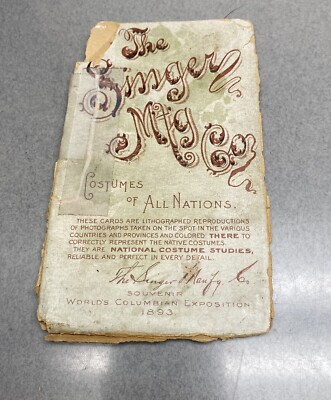 The
Singer
Mfg
Co.
COSTUMES
OF ALL NATIONS.
THESE CARDS ARE LITHOGRAPHED REPRODUCTIONS
OF PHOTOGRAPHS TAKEN ON THE SPOT IN THE VARIOUS
COUNTRIES AND PROVINCES AND COLORED THERE TO
CORRECTLY REPRESENT THE NATIVE COSTUMES.
THEY ARE NATIONAL COSTUME STUDIES,
RELIABLE AND PERFECT IN EVERY DETAIL.
The Singer Manfg. Co
SOUVENIR
WORLD'S COLUMBIAN EXPOSITION
1893.